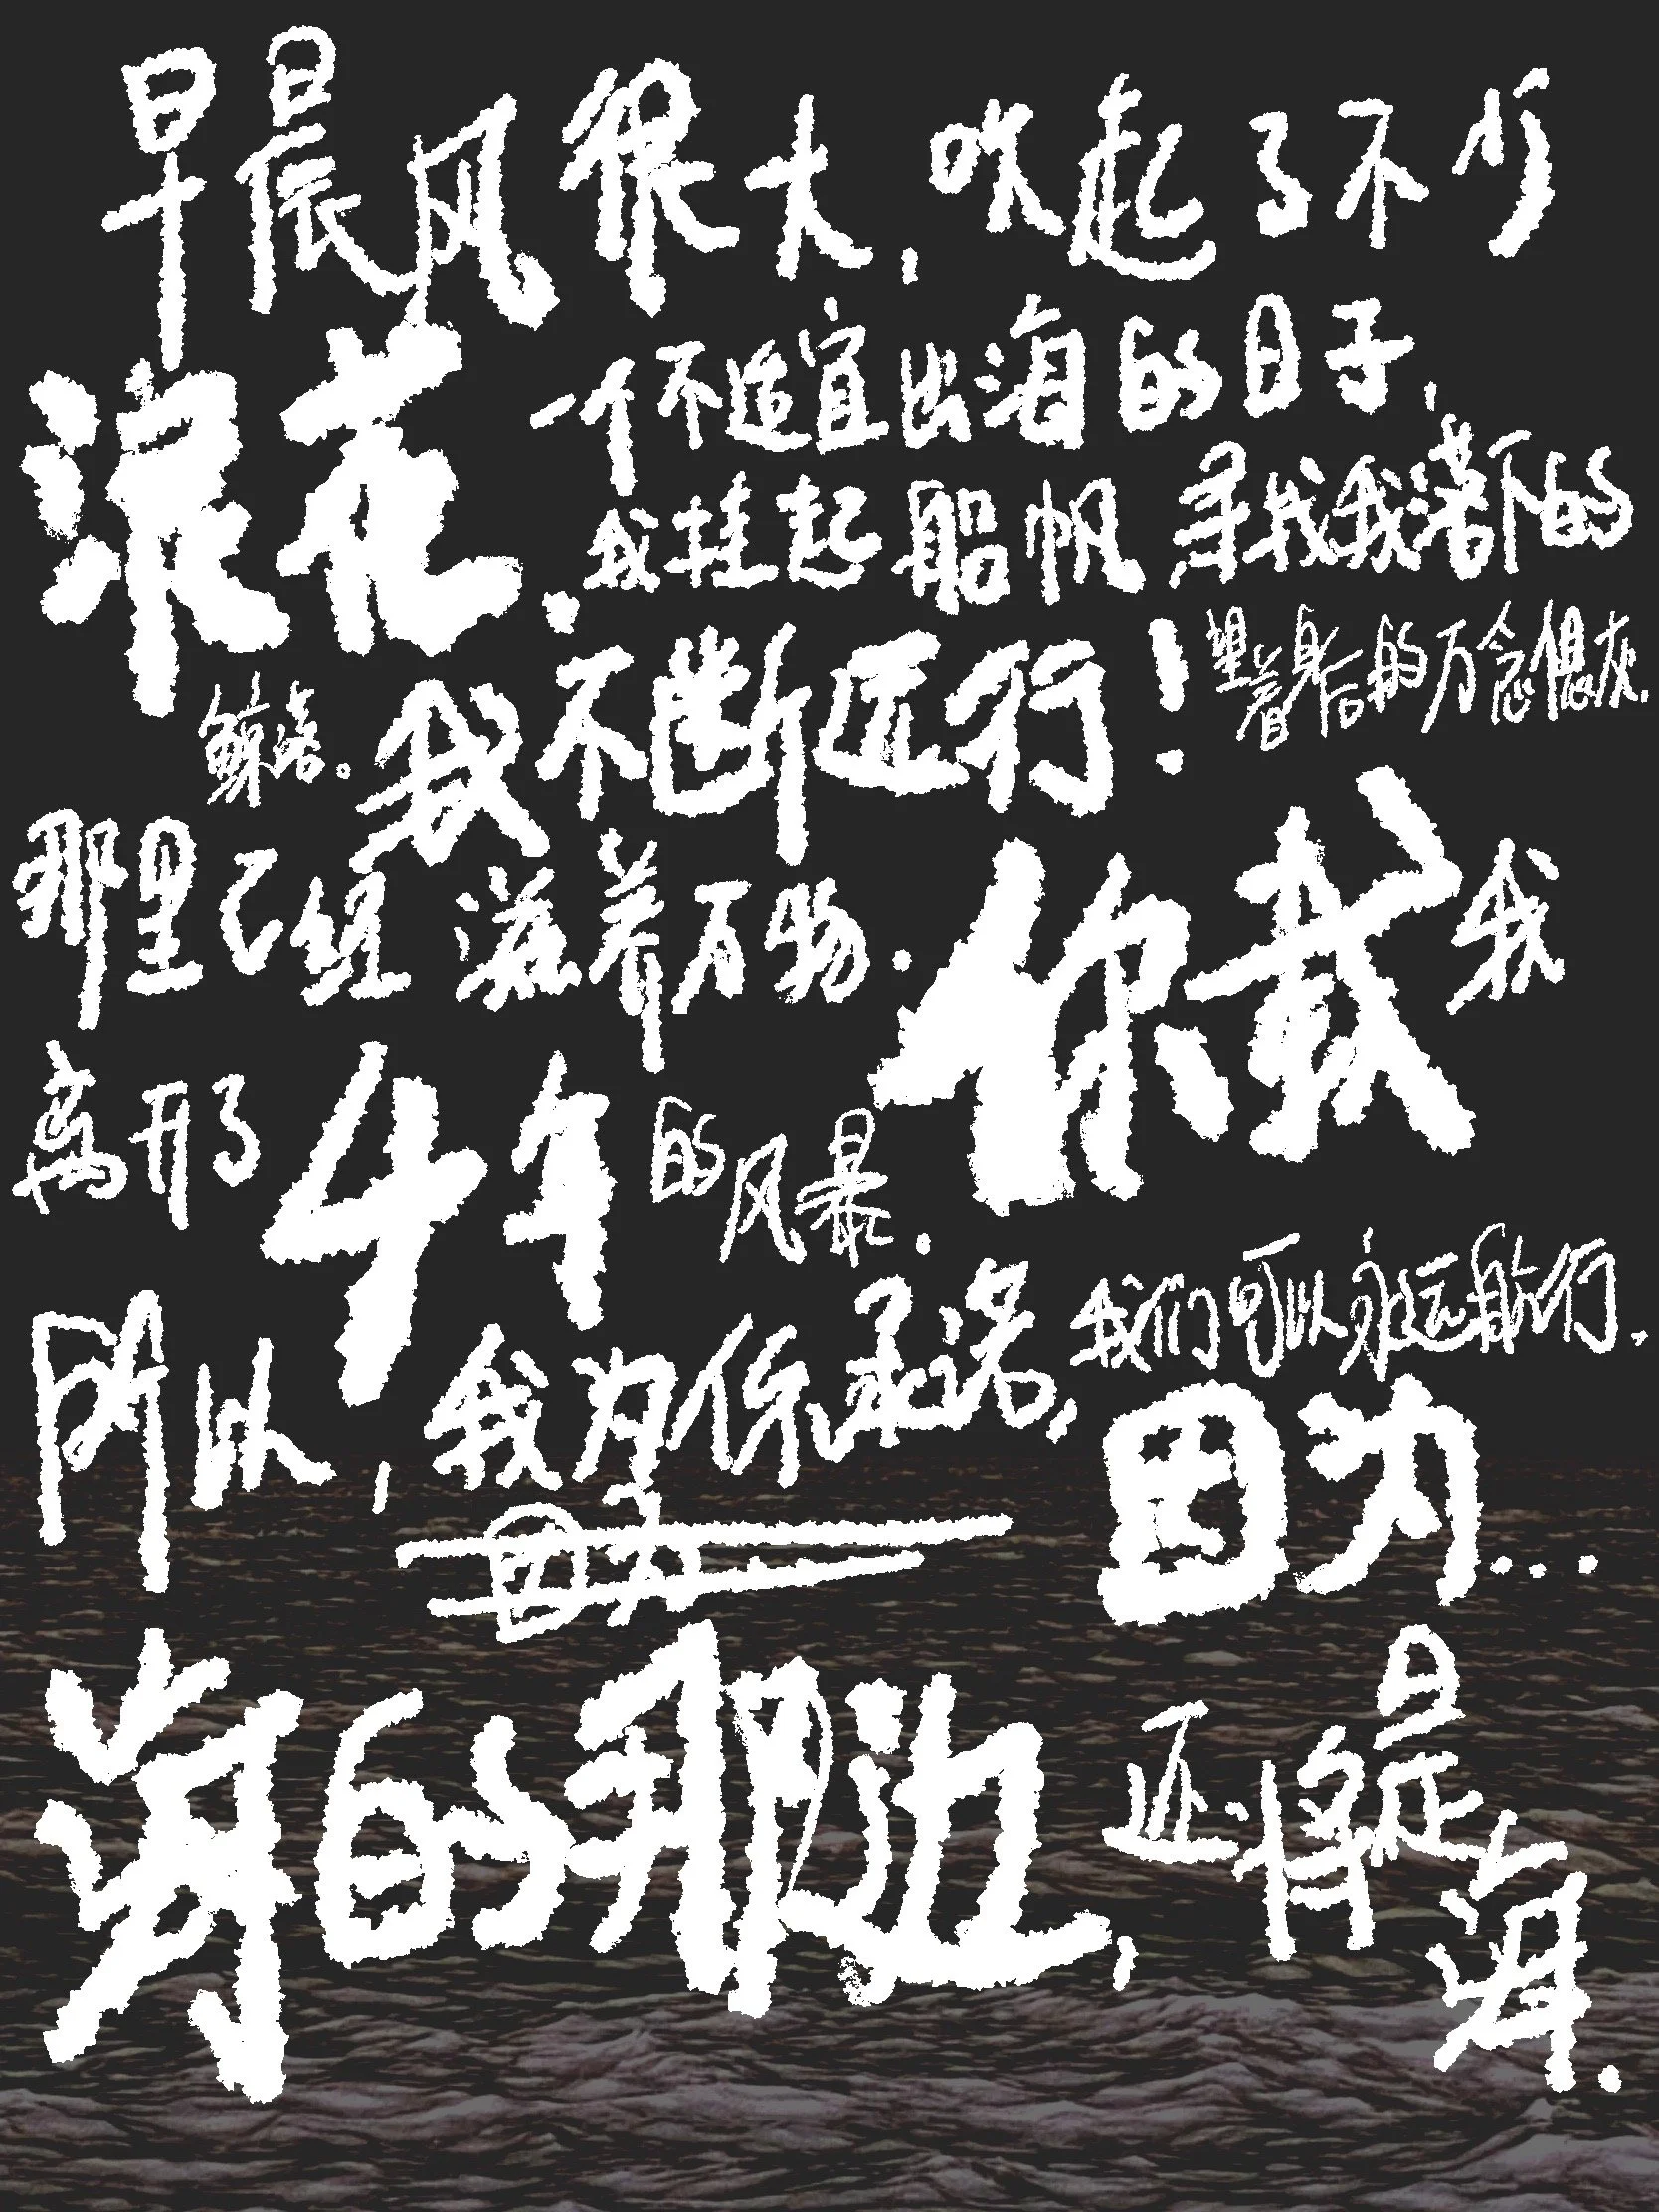 早晨风很大,吹起了不少
浪花.
一个不适宜出海的日子,
我挂起船帆 寻找我落下的
鲸落。
我不断远行!
望着身后的万念俱灰.
那里已经滋养万物.
你载我
离开了
午年的风暴.
所以,我为你承诺,
我们可以永远航行.
因为
因为...
海的那边,还将是
海.